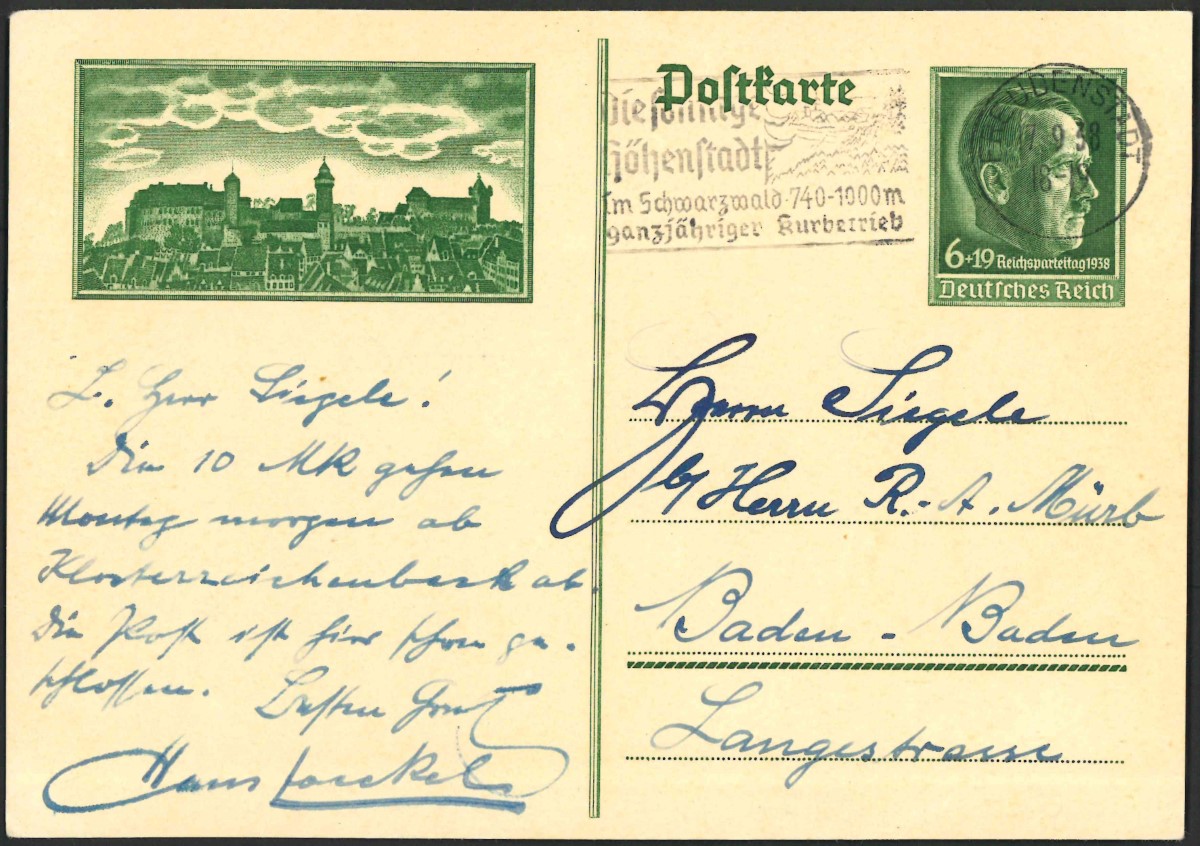 Postkarte
Die sonnige
Höhenstadt
Im Schwarzwald · 740-1000m
ganzjähriger Kurbetrieb
FREUDENSTADT
17.9.38
18-19
6+19 Reichsparteitag 1938
Deutsches Reich
L. Herr Siegele!
Die 10 MK gehen
Montag morgen ab
Klosterreichenbach ab.
Die Post ist hier schon ge-
schlossen.
Besten Gruß
Hans
Herrn Siegele
b/ Herrn R.-A. Mürb
Baden-Baden
Langestrasse